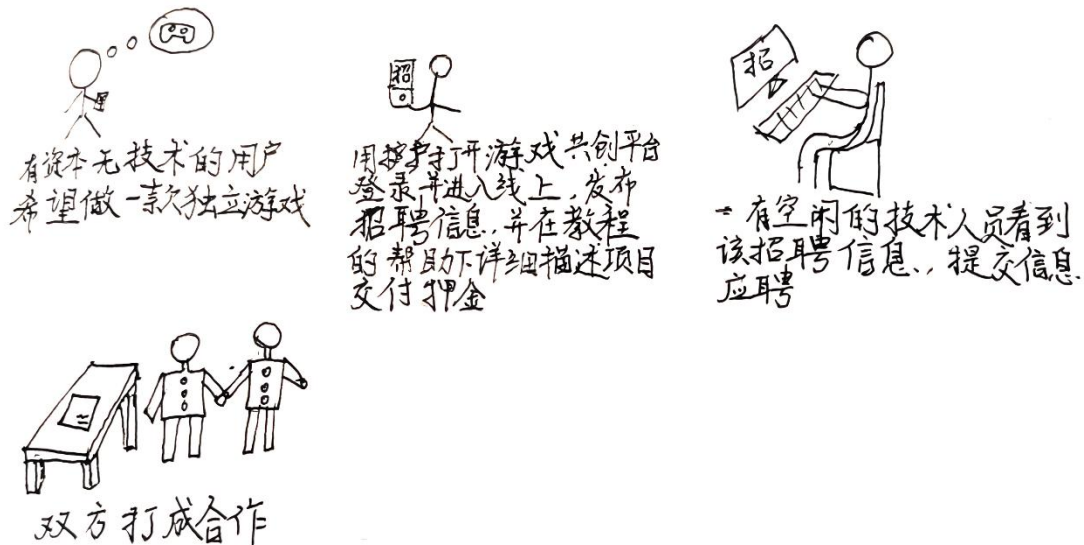 有资本无技术的用户
希望做一款独立游戏
招
用护打开游戏共创平台
登录并进入线上，发布
招聘信息，并在教程
的帮助下详细描述项目
交付押金
招
一有空闲的技术人员看到
该招聘信息，提交信息
应聘
双方打成合作